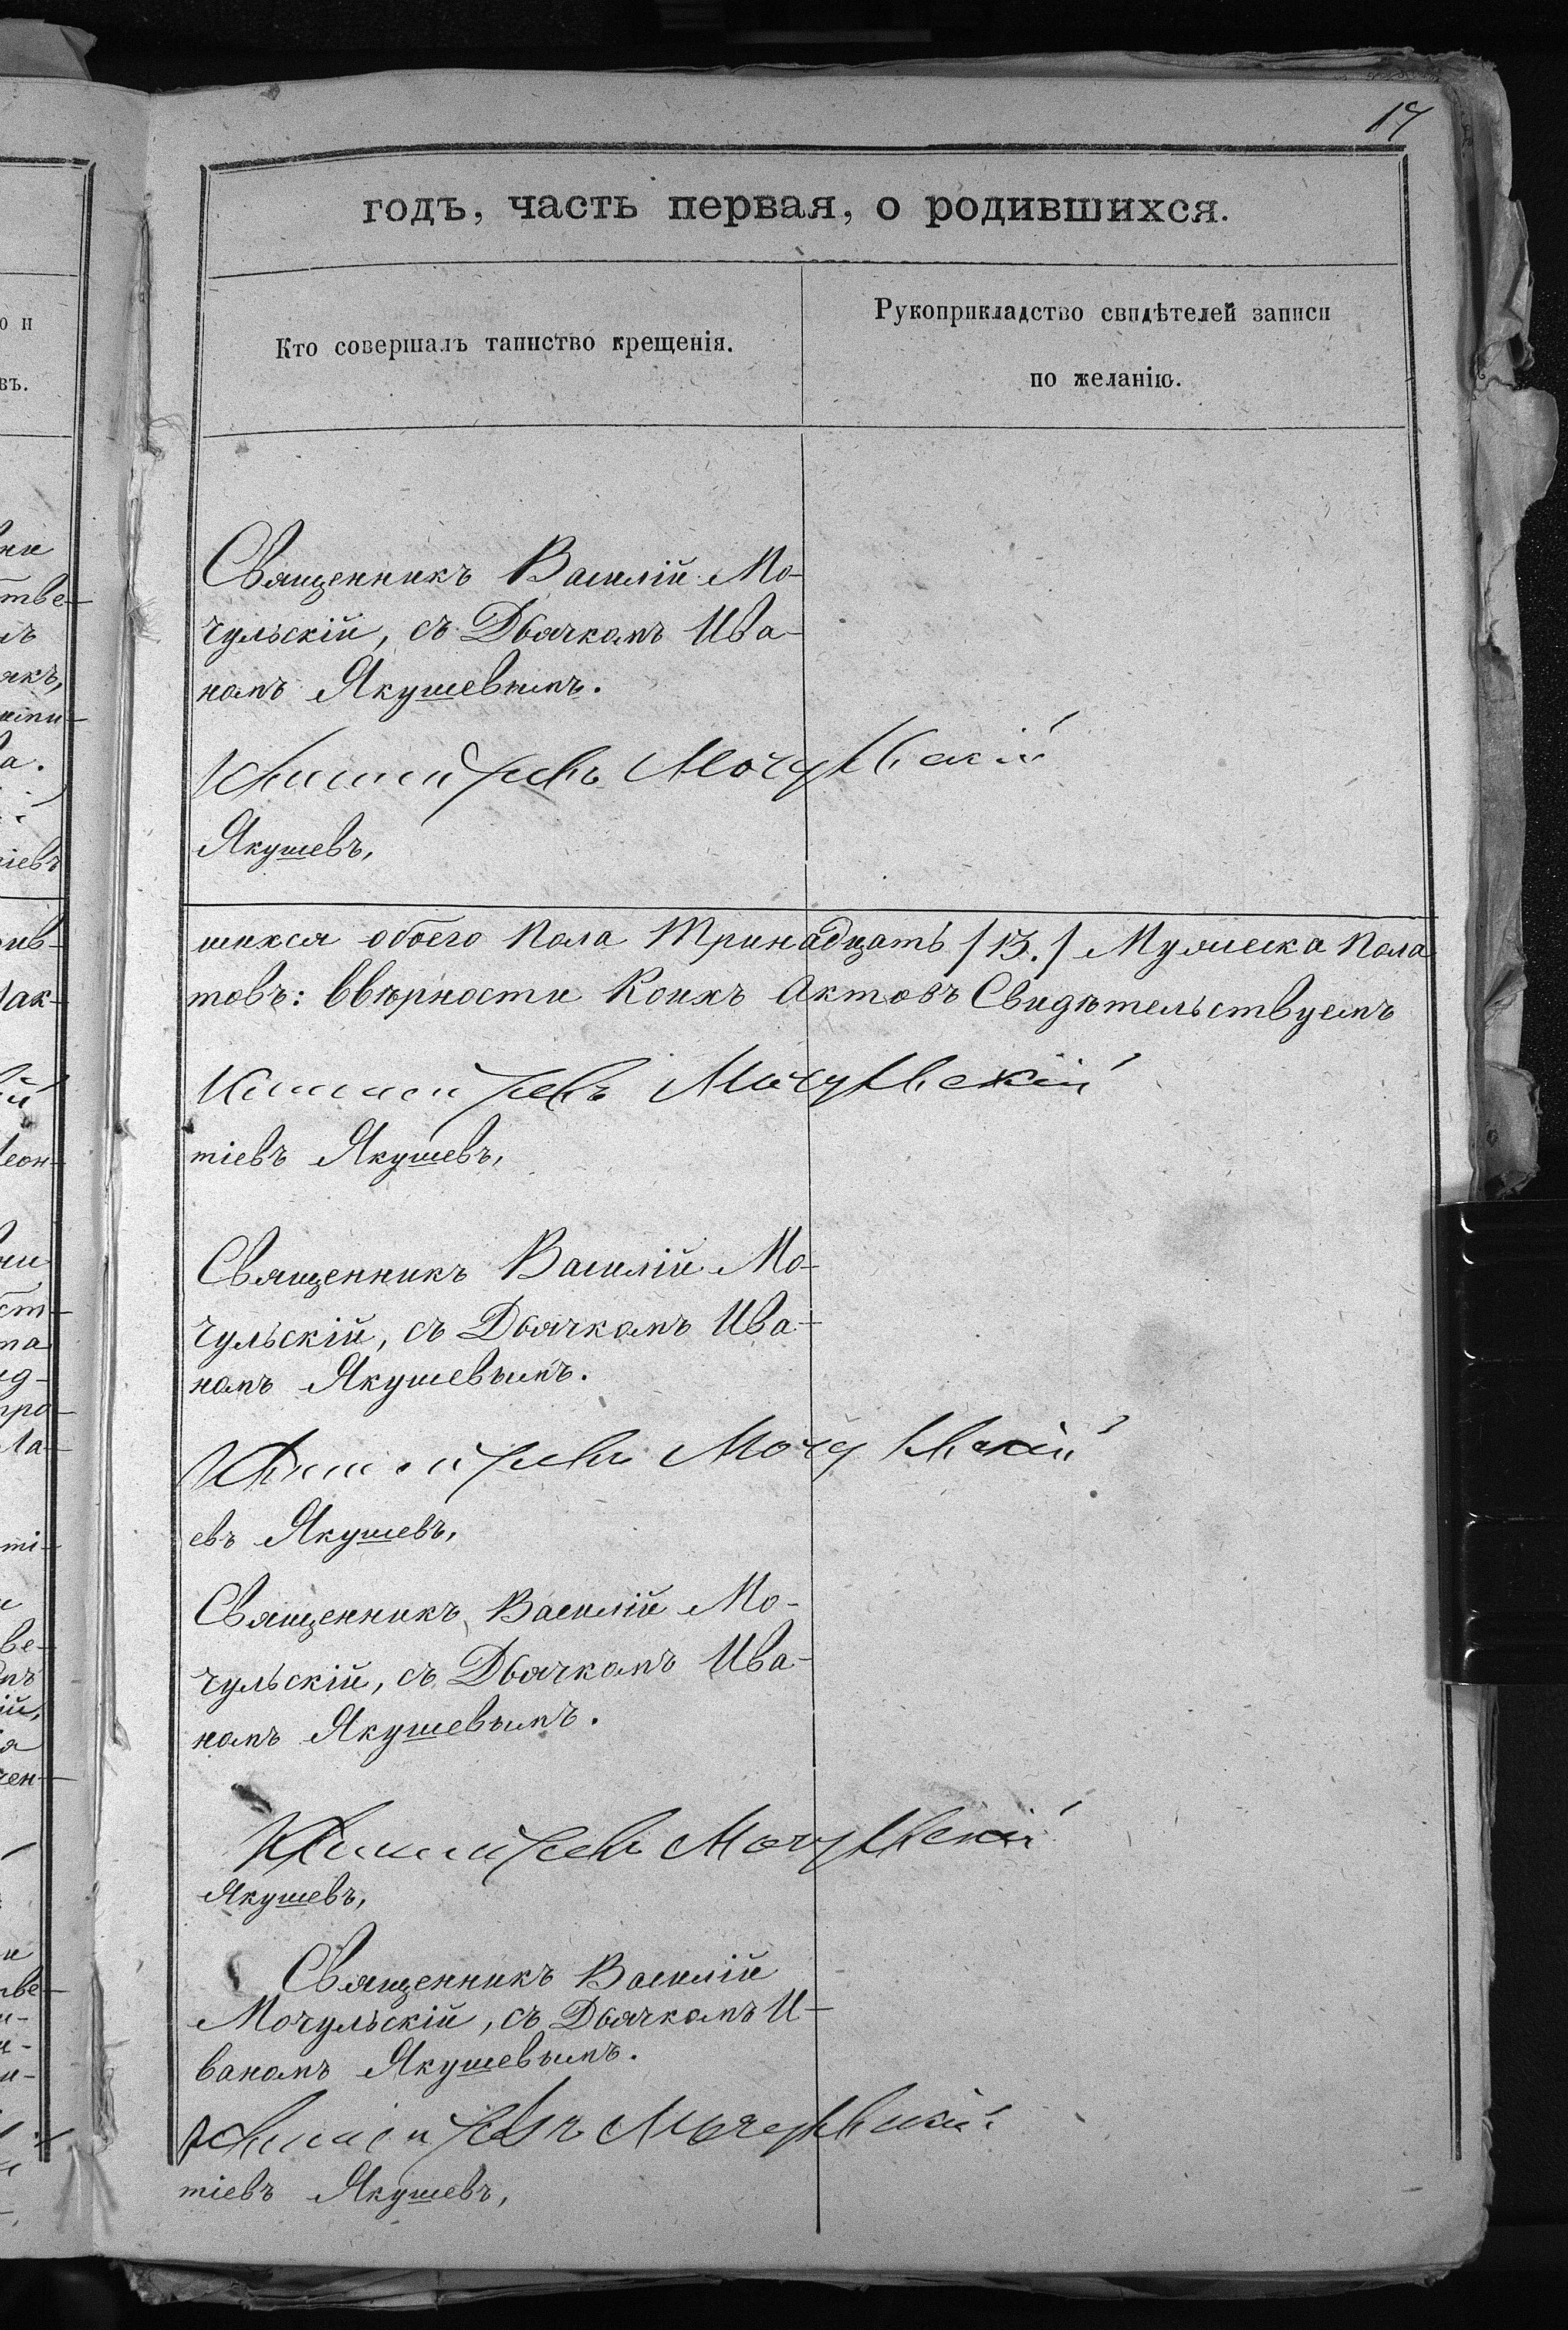 17
годъ, часть первая, о родившихся.
Кто совершалъ таинство крещенія.
Рукоприкладство свидѣтелей записи
по желанію.
Священникъ Василій Мо-
чульскій, съ Дьячкомъ Ива-
номъ Якушевымъ.
Мочульскій
Якушевъ,
шихся обоего Пола Тринадцать /13./ Мужеска Пола
товъ: ввѣрности Коихъ Актовъ Свидѣтельствуемъ
Мочульскій
тіевъ Якушевъ,
Священникъ Василій Мо-
чульскій, съ Дьячкомъ Ива-
номъ Якушевымъ.
Мочульскій
евъ Якушевъ,
Священникъ Василій Мо-
чульскій, съ Дьячкомъ Ива-
номъ Якушевымъ.
Мочульскій
Якушевъ,
Священникъ Василій
Мочульскій, съ Дьячкомъ И-
ваномъ Якушевымъ.
Мочульскій
тіевъ Якушевъ,